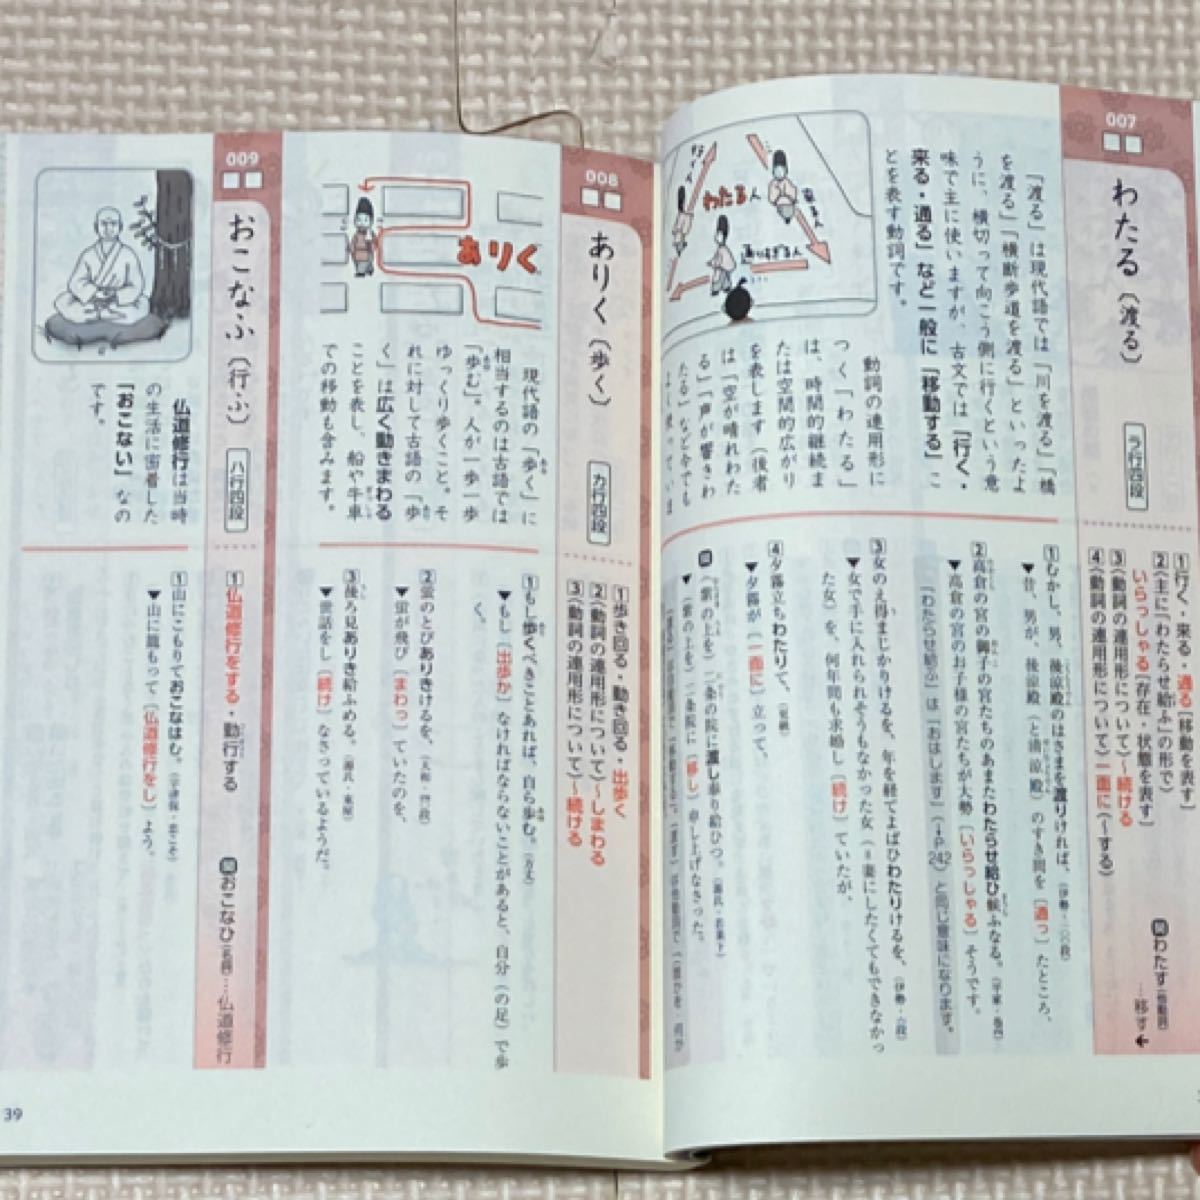 007
わたる（渡る）
ラ行四段
①行く・来る・通る［移動を表す］
②（主に「わたらせ給ふ」の形で）
いらっしゃる［存在・状態を表す］
③（動詞の連用形について）〜続ける
④（動詞の連用形について）一面に（〜する）
関わたす（他動詞）
…移す
「渡る」は現代語では「川を渡る」「橋
を渡る」「横断歩道を渡る」といったよ
うに、横切って向こう側に行くという意
味で主に使いますが、古文では「行く・
来る・通る」など一般に「移動する」こ
とを表す動詞です。
わたる人
来る人
通りすぎる人
動詞の連用形に
つく「わたる」
は、時間的継続ま
たは空間的広がり
を表します（後者
は「空が晴れわた
る」「声が響きわ
たる」など今でも
よく使っていま
①むかし、男、後涼殿のはさまを渡りければ、（伊勢・一〇〇段）
▼昔、男が、後涼殿（と清涼殿）のすき間を［通っ］たところ、
②高倉の宮の御子の宮たちのあまたわたらせ給ひ候ふなる。
▼高倉の宮のお子様の宮たちが大勢［いらっしゃる］そうです。
「わたらせ給ふ」は「おはします」（→P.242）と同じ意味になります。
③女のえ得まじかりけるを、年を経てよばひわたりけるを、（伊勢・六段）
▼女で手に入れられそうもなかった女（＝妻にしたくてもできなかっ
た女）を、何年間も求婚し［続け］ていたが、
④夕霧立ちわたりて、
▼夕霧が［一面に］立って、
関（紫の上を）二条の院に渡し奉り給ひつ。（源氏・若菜下）
▼（紫の上を）二条院に［移し］申し上げなさった。
008
ありく（歩く）
カ行四段
①歩き回る・動き回る・出歩く
②（動詞の連用形について）〜しまわる
③（動詞の連用形について）〜続ける
ありく
現代語の「歩く」に
相当するのは古語では
「歩む」。人が一歩一歩
ゆっくり歩くこと。そ
れに対して古語の「歩
く」は広く動きまわる
ことを表し、船や牛車
での移動も含みます。
①もし歩くべきことあれば、自ら歩む。（方丈）
▼もし［出歩か］なければならないことがあると、自分（の足）で歩
く。
②蛍のとびありきけるを、
▼蛍が飛び［まわっ］ていたのを、
③後ろ見ありき給ふめる。（源氏・東屋）
▼世話をし［続け］なさっているようだ。
009
おこなふ（行ふ）
ハ行四段
①仏道修行をする・勤行する
関おこなひ（名詞）…仏道修行
仏道修行は当時
の生活に密着した
「おこない」なの
です。
①山にこもりておこなはむ。
▼山に籠もって［仏道修行をし］よう。
39